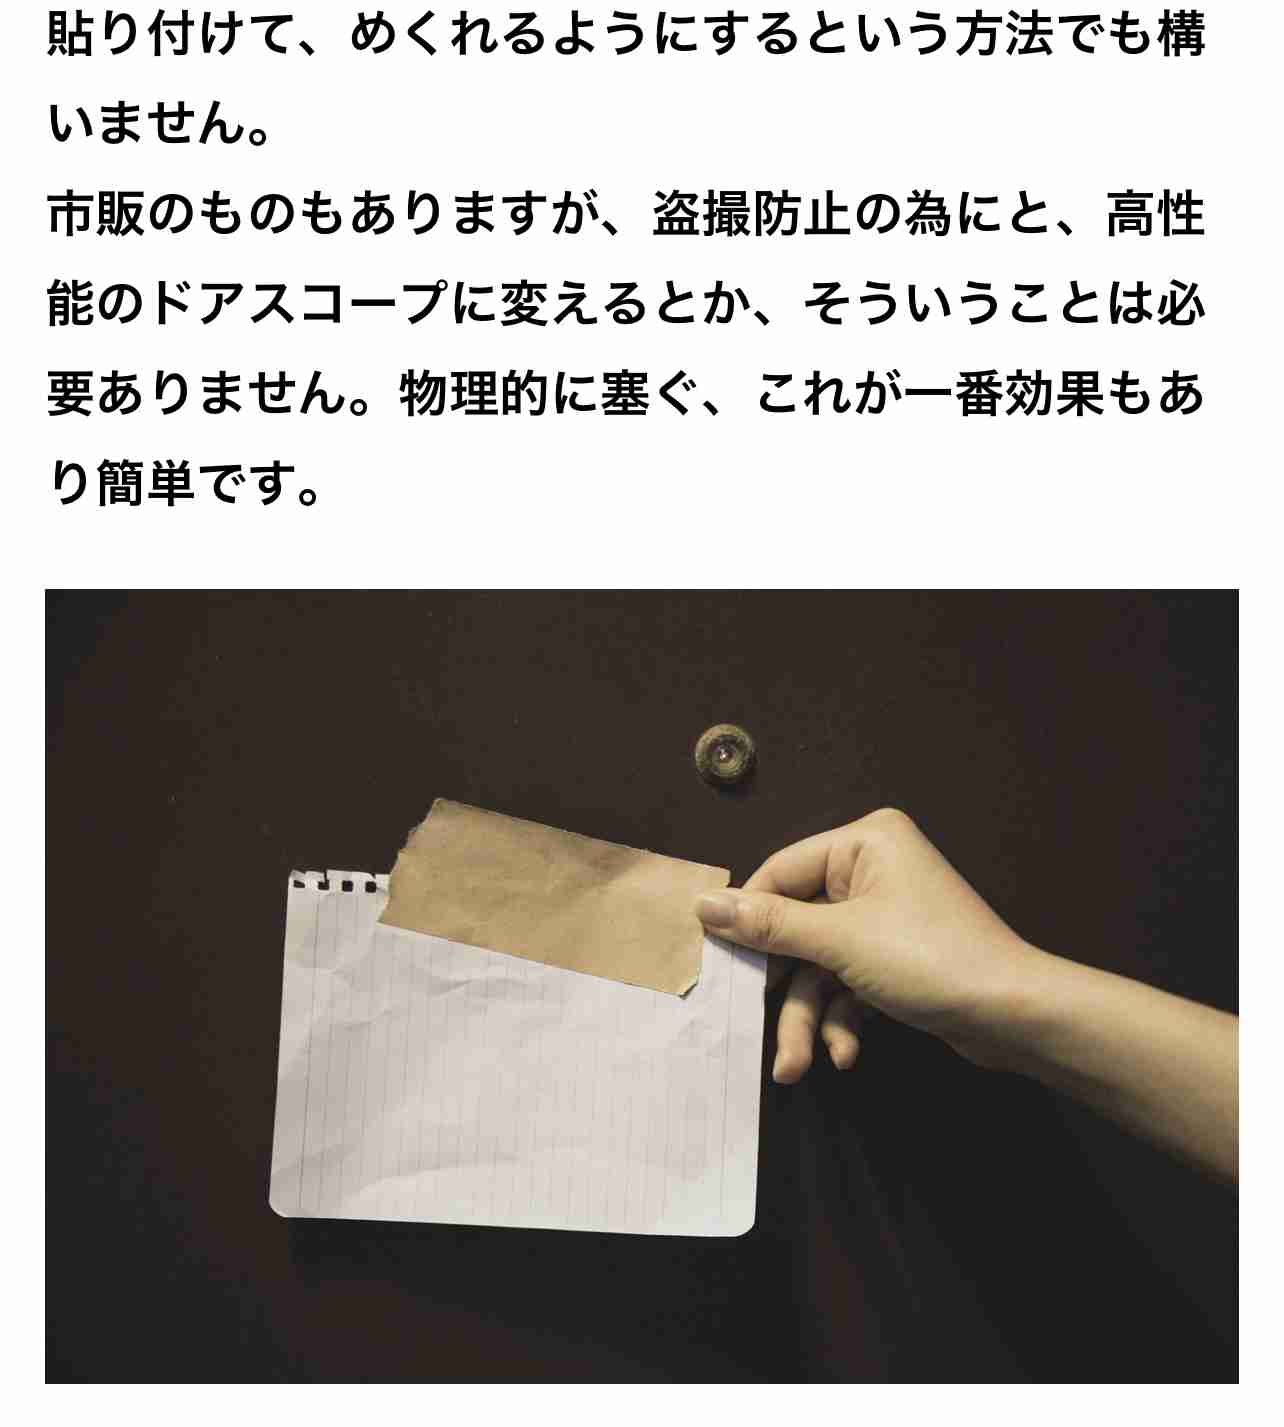 貼り付けて、めくれるようにするという方法でも構
いません。
市販のものもありますが、盗撮防止の為にと、高性
能のドアスコープに変えるとか、そういうことは必
要ありません。物理的に塞ぐ、これが一番効果もあ
り簡単です。